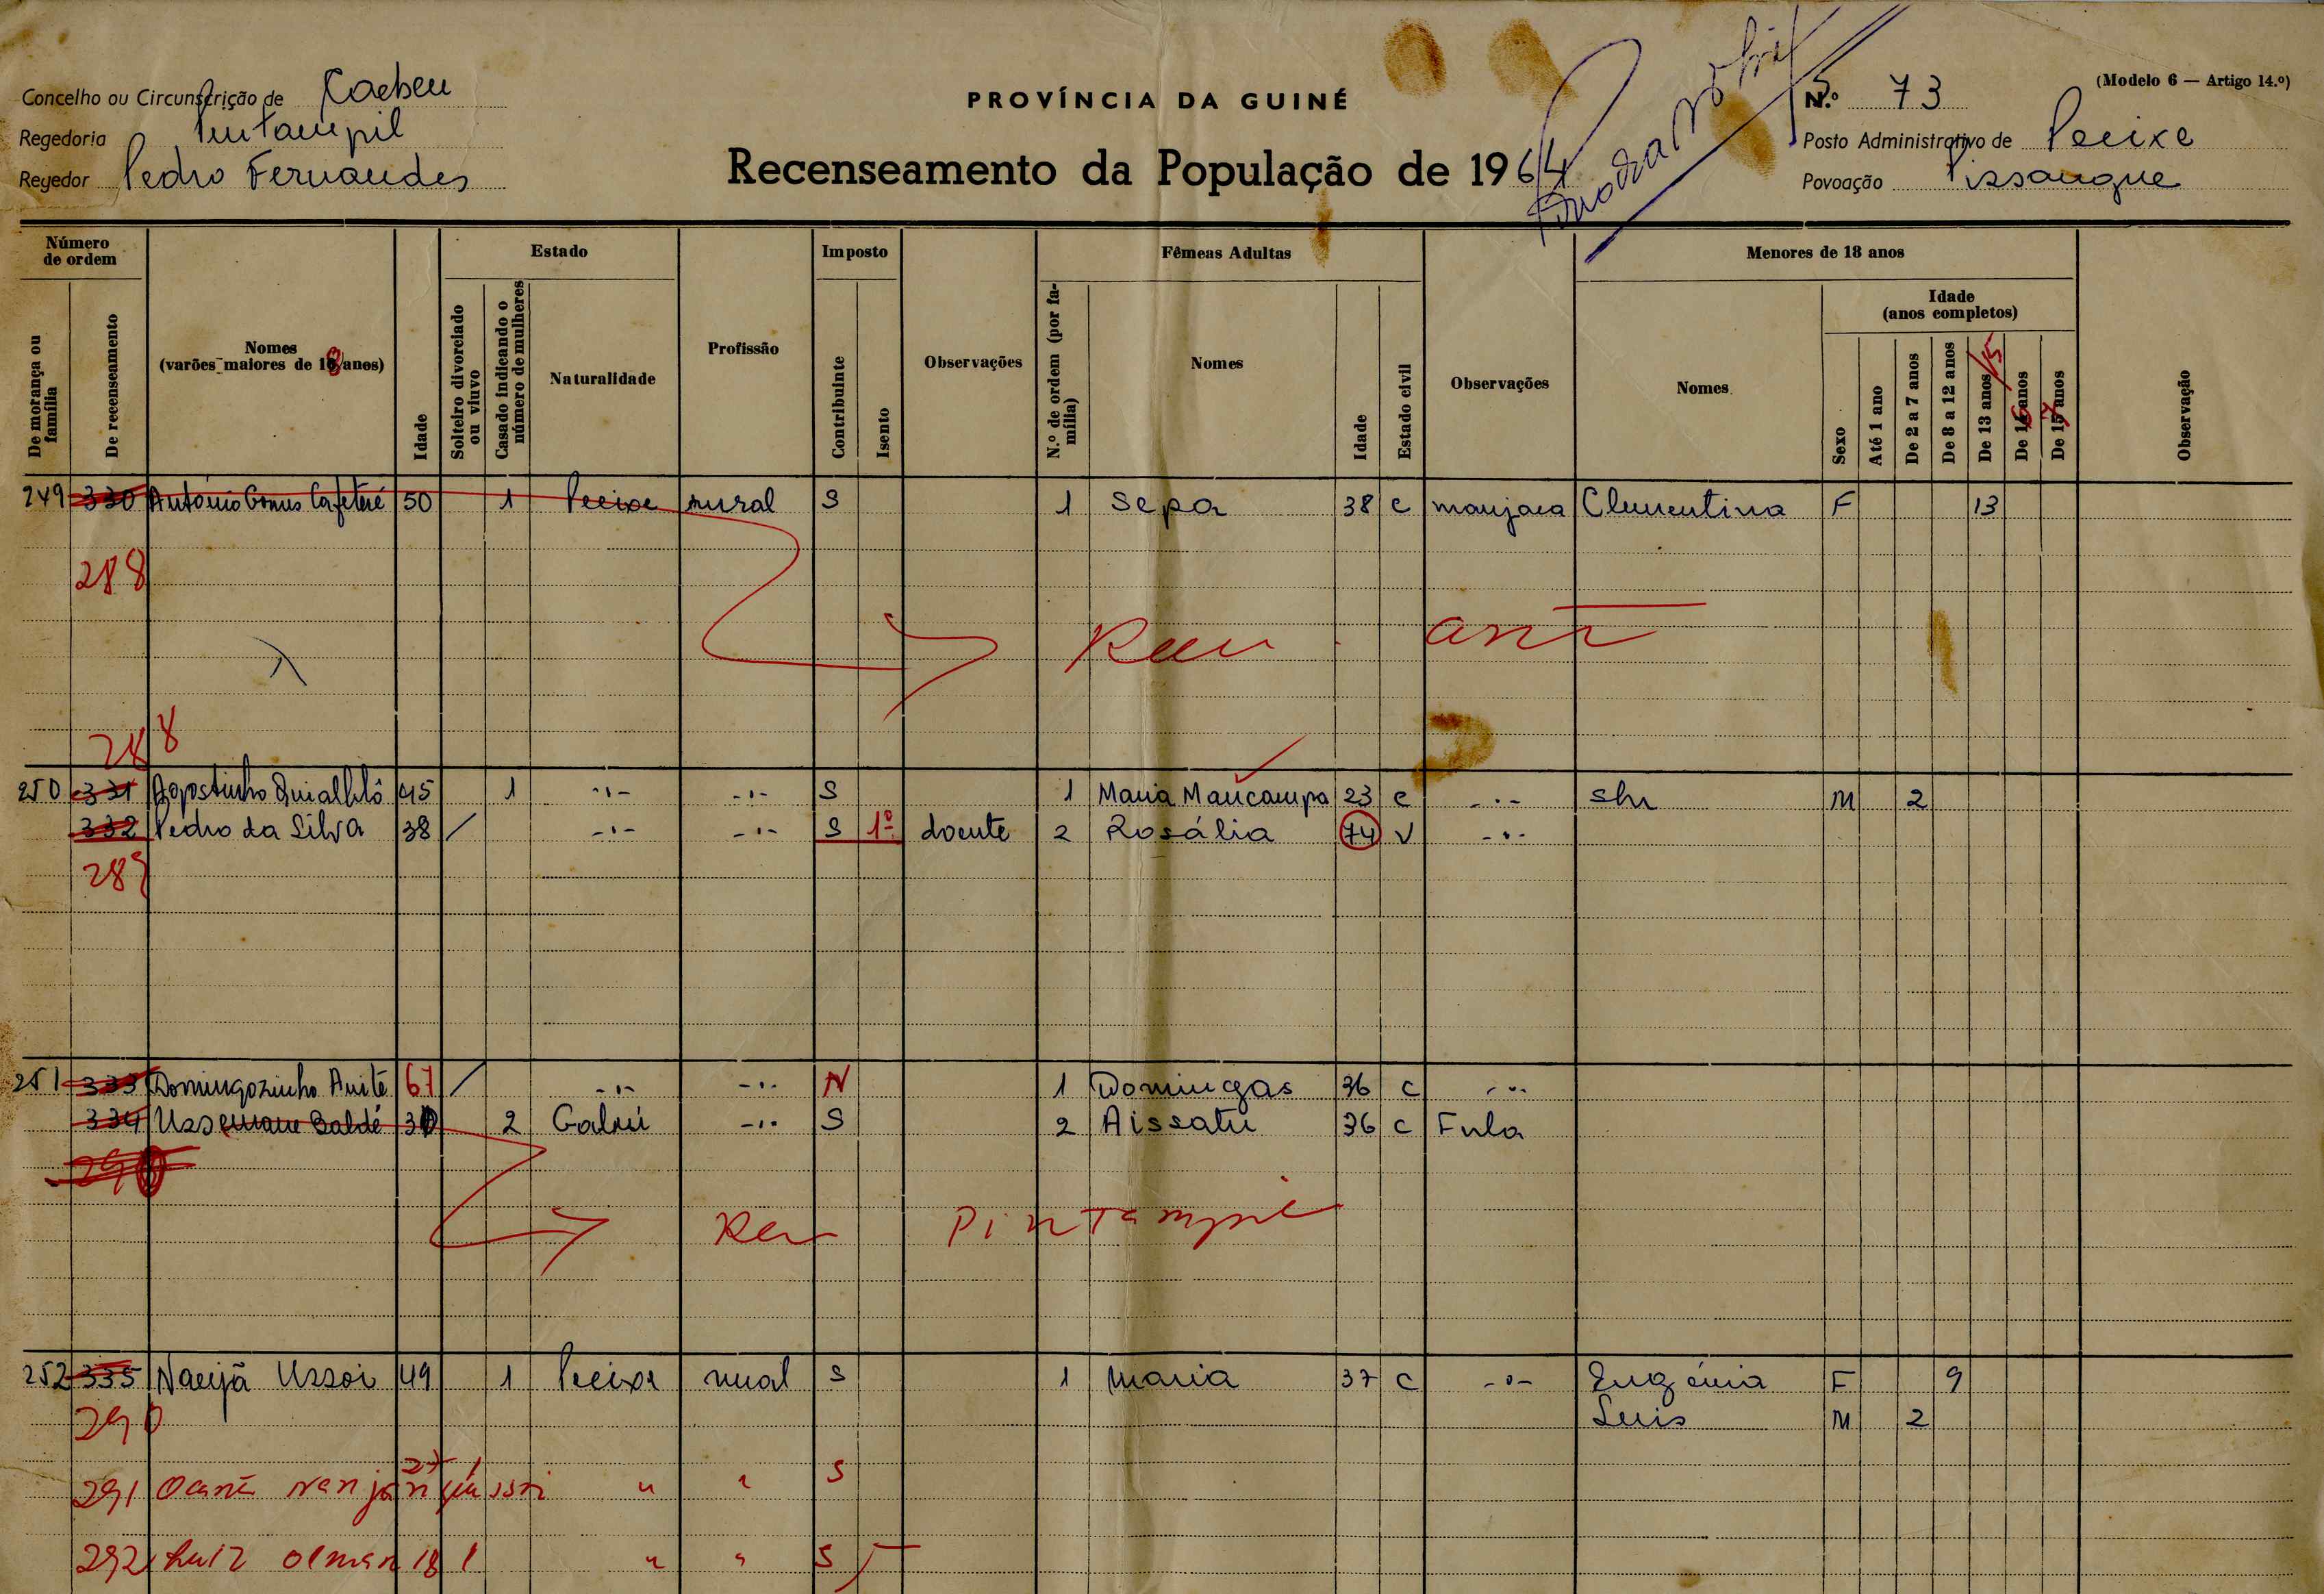 PROVÍNCIA DA GUINÉ
Recenseamento da População de 1964
(Modelo 6 — Artigo 14.º)
Concelho ou Circunscrição de Caeheu
Regedoria Pintampil
Regedor Pedro Fernandes
N.º 73
Posto Administrativo de Pecixe
Povoação Pissangue
Número de ordem
De morança ou família
De recenseamento
Nomes
(varões maiores de 18 anos)
Idade
Estado
Solteiro divorciado ou viuvo
Casado indicando o número de mulheres
Naturalidade
Profissão
Imposto
Contribuinte
Isento
Observações
Fêmeas Adultas
N.º de ordem (por família)
Nomes
Idade
Estado civil
Observações
Menores de 18 anos
Nomes
Idade
(anos completos)
Sexo
Até 1 ano
De 2 a 7 anos
De 8 a 12 anos
De 13 anos 15
De 16 anos
De 17 anos
Observação
249 330 António Gomes Cafeteré 50 1 Pecixe rural S 1 Sepa 38 C manjaca Clementina F 13
288
288
250 331 Agostinho 45 1 -"- -"- S 1 Maria Mancampa 23 C -"- M 2
332 Pedro da Silva 38 / -"- -"- S 1º doente 2 Rosália 74 V -"-
289
251 333 Domingozinho 67 / -"- -"- N 1 Domingas 36 C -"-
334 Ussemane Baldé 30 2 -"- S 2 Aissatu 36 C Fula
290
Pintampil
252 335 Nanjã Ussoi 49 1 Pecixe rural S 1 Maria 37 C -"- Eugénia F 9
290 Luis M 2
291 " " S
292 Luiz 18 / " " S